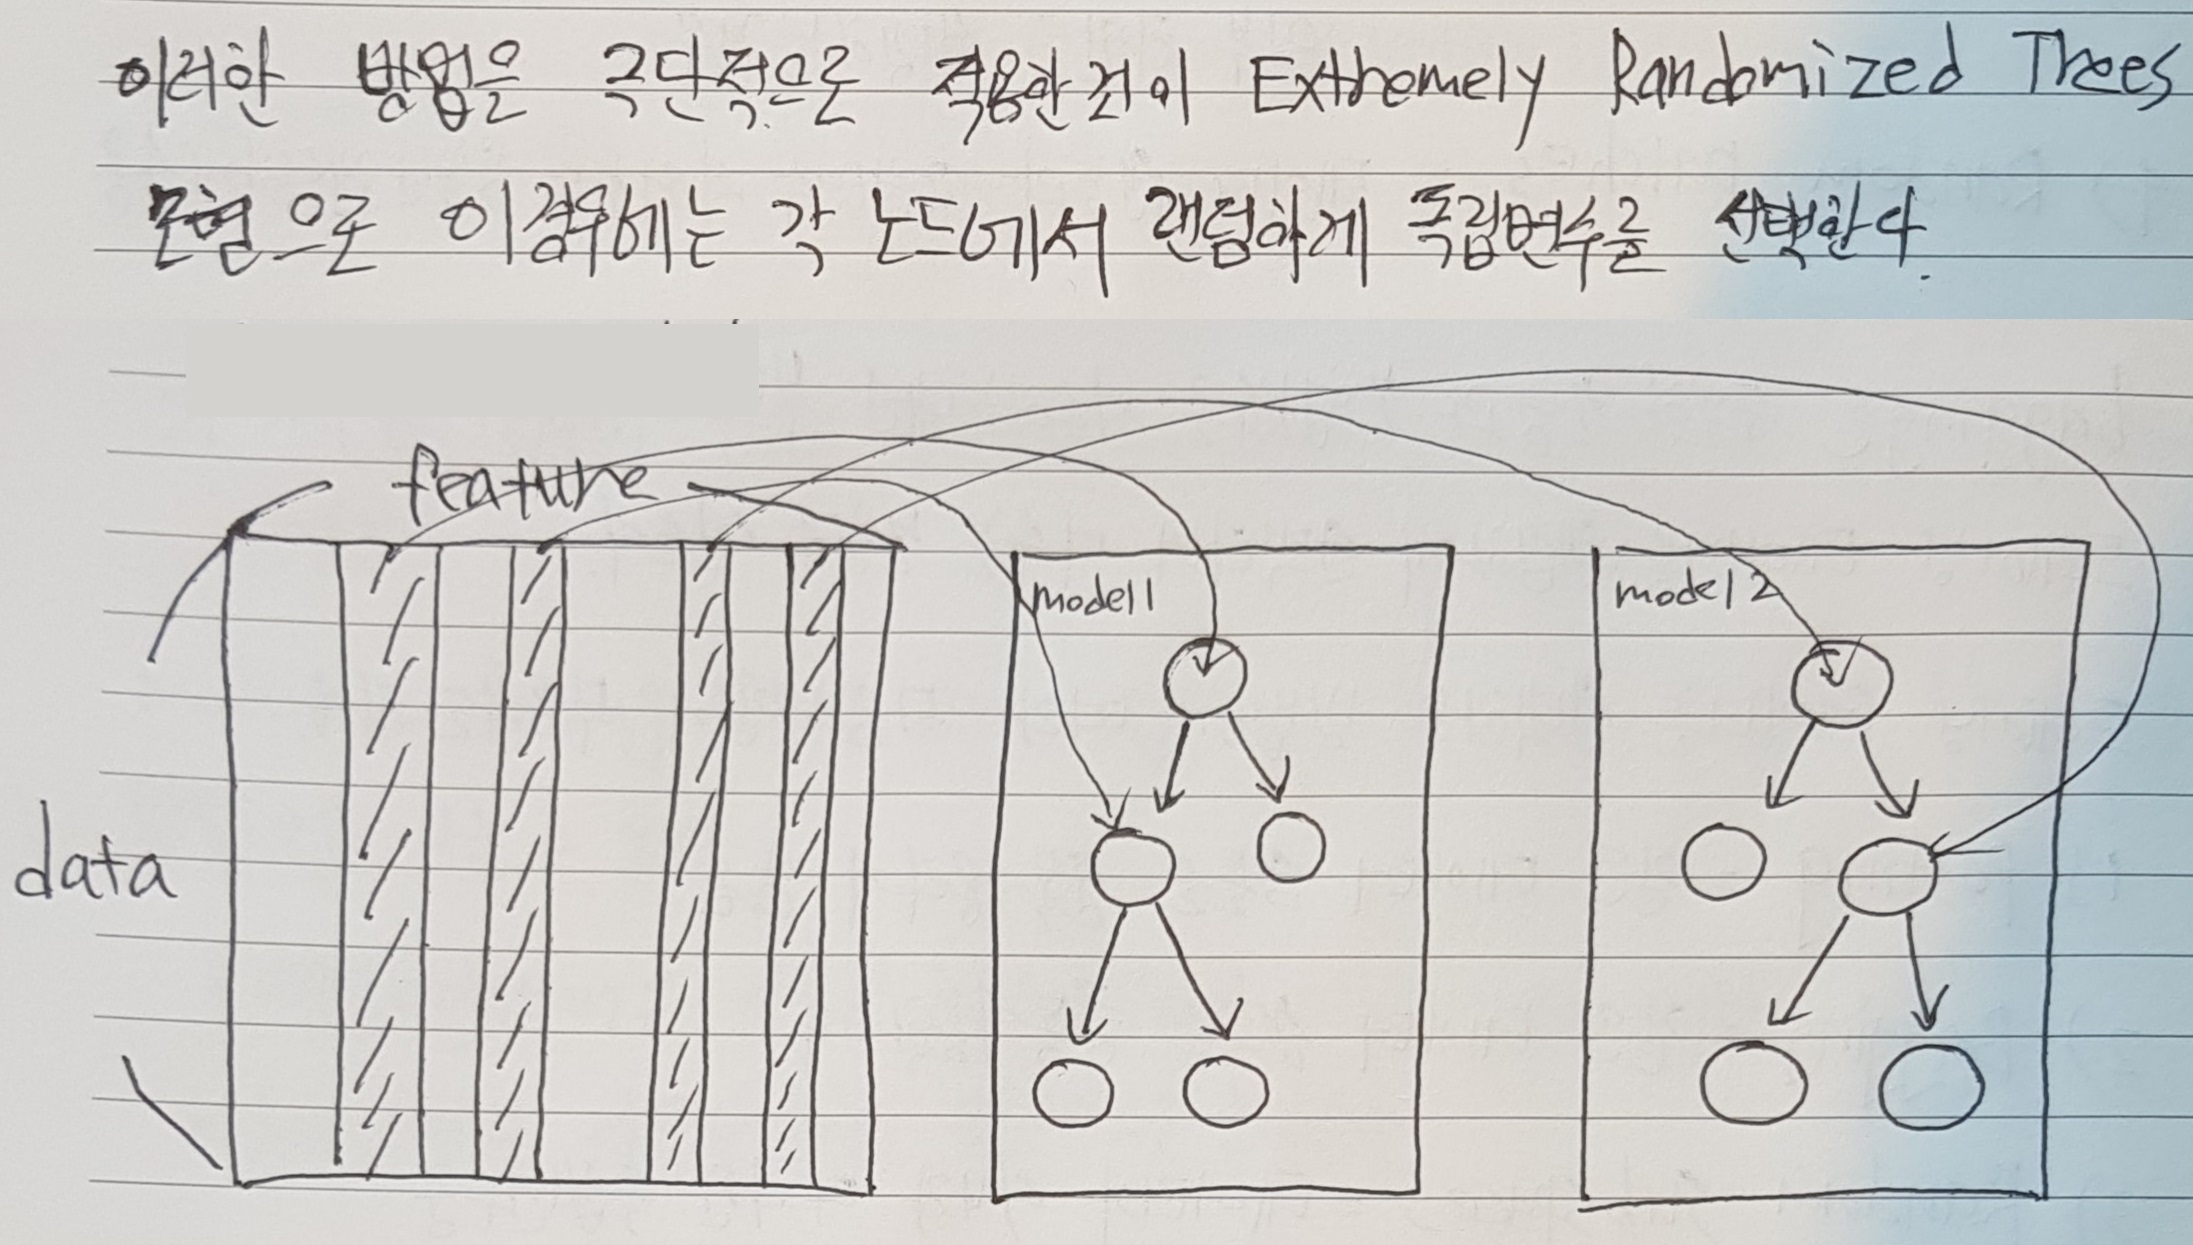 이러한 방법은 극단적으로 적용한 것이 Extremely Randomized Trees
모형으로 이경우에는 각 노드에서 랜덤하게 독립변수를 선택한다.
feature
model1
model 2
data